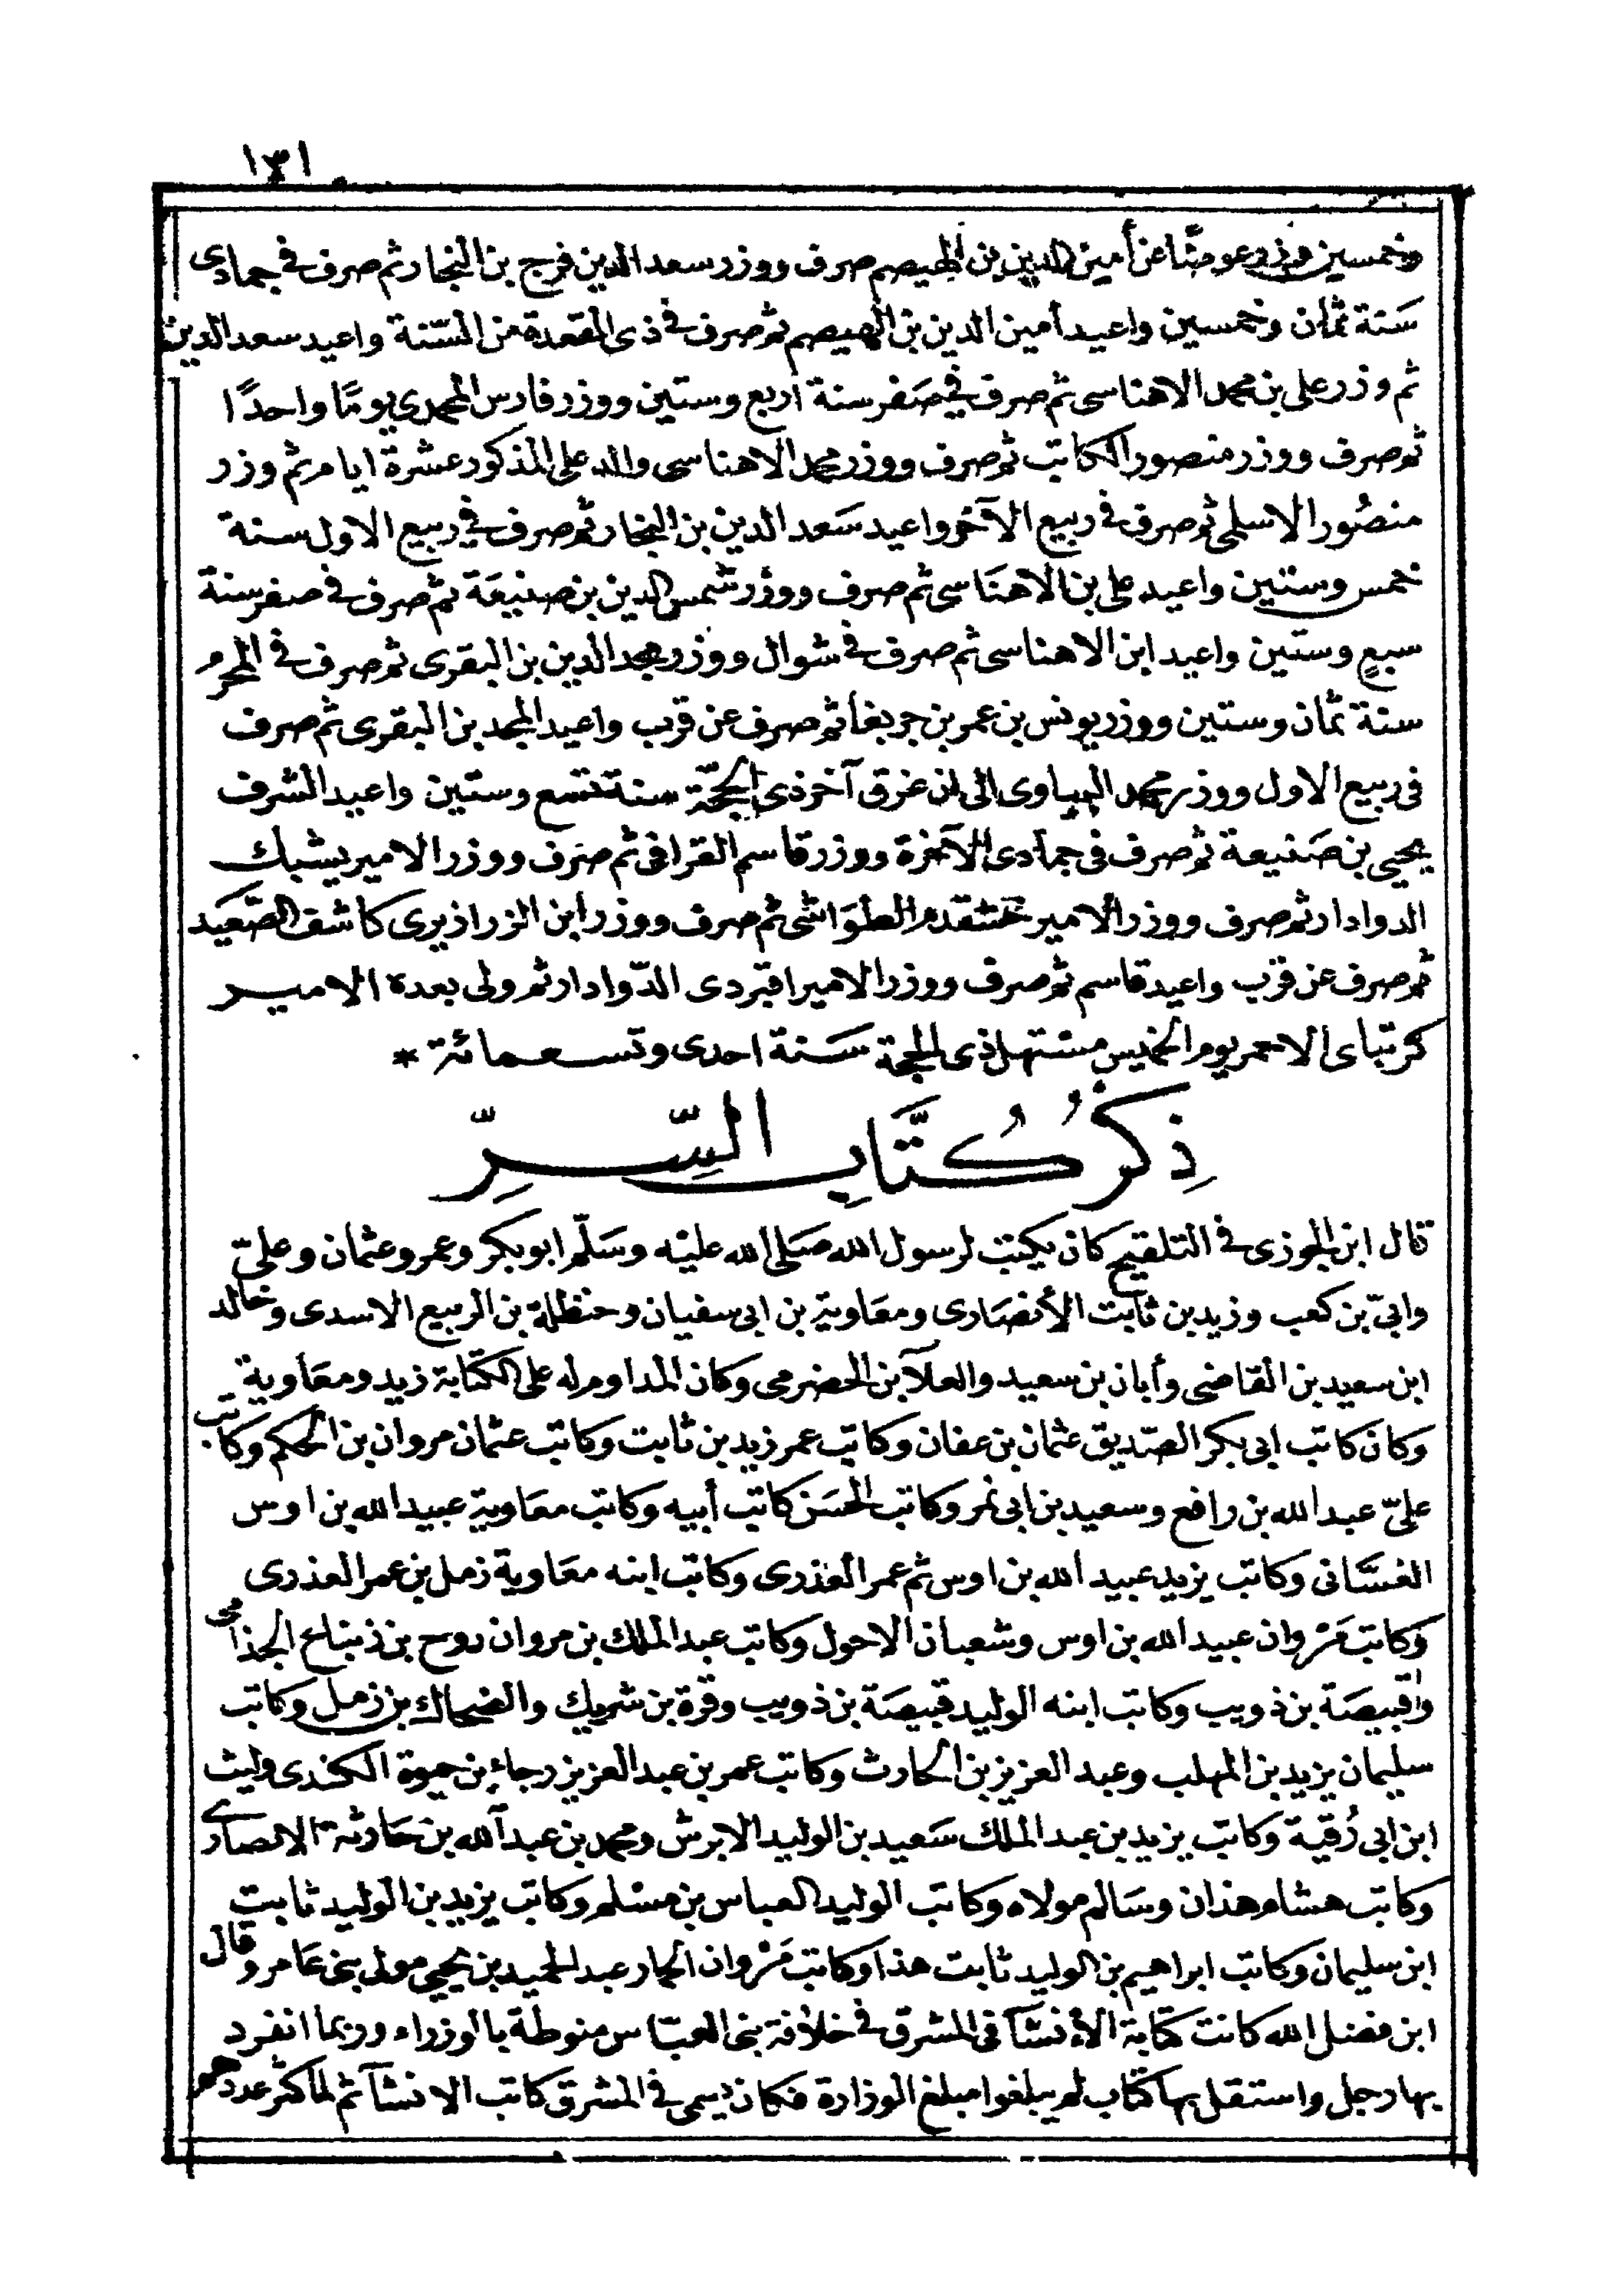 ١٣١
وخمسين وزر عوضًا عن أمين الدين بن الهيصم صرف ووزر سعد الدين فرج بن النجار ثم صرف في جمادى
سنة ثمان وخمسين واعيد أمين الدين بن الهيصم ثم صرف في ذى القعدة من السنة واعيد سعد الدين
ثم وزر على بن محمد الاهناسى ثم صرف في صفر سنة أربع وستين ووزر فارس المحمدى يومًا واحدًا
ثم صرف ووزر منصور الكاتب ثم صرف ووزر محمد الاهناسى والد على المذكور عشرة ايام ثم وزر
منصُور الاسلمى ثم صرف في ربيع الآخر واعيد سَعد الدين بن النجار ثم صرف في ربيع الاول سنة
خمس وستين واعيد على بن الاهنَاسى ثم صرف ووزر شمس الدين بن صنيعَة ثم صرف في صفر سنة
سبعٍ وستين واعيد ابن الاهناسى ثم صرف في شوال ووزر مجد الدين بن البقرى ثم صرف في المحرم
سنة ثمان وستين ووزر يونس بن عمر بن جربغا ثم صرف عن قرب واعيد المجد بن البقرى ثم صرف
فى ربيع الاول ووزر محمد البباوى الى ان غرق آخر ذى الحجّة سنة تسع وستين واعيد الشرف
يحيى بن صَنيعة ثم صرف فى جمادى الآخرة ووزر قاسم القرافى ثم صرف ووزر الامير يشبك
الدوادار ثم صرف ووزر الامير خشقدم الطوَاشى ثم صرف ووزر ابن الزرازيرى كاشف الصَّعيد
ثم صرف عن قرب واعيد قاسم ثم صرف ووزر الامير اقبردى الدّوادار ثم ولى بعدة الامير
كرتباى الاحمر يوم الخميس مستهل ذى الحجة سَنة احدى وتسعمائة *
ذِكْرُ كُتَّابِ السِّرِّ
قال ابن الجوزى في التلقيح كان يكتب لرسول الله صَلى الله عليْه وسَلَّم ابو بكر وعمر وعثمان وعلىّ
وابىّ بن كعب وزيد بن ثابت الأنصَارى ومعَاوية بن ابى سفيان وحنظلة بن الربيع الاسدى وخالد
ابن سعيد بن القاضى وأبان بن سعيد والعلآ بن الحضرمى وكان المداوم له على الكتابة زيد ومعَاوية
وكان كاتب ابى بكر الصّديق عثمان بن عفان وكاتب عمر زيد بن ثابت وكاتب عثمان مروان بن الحكم وكاتب
علىّ عبد الله بن رافع وسعيد بن ابى نمر وكاتب الحسَن كاتب أبيه وكاتب معَاوية عبيد الله بن اوس
الغسَّانى وكاتب يزيد عبيد الله بن اوس ثم عمر العذرى وكاتب ابنه معَاوية زمل بن عمر العذرى
وكاتب مَرْوان عبيد الله بن اوس وشعبان الاحول وكاتب عبد الملك بن مروان روح بن زنباع الجذامى
واقبيصَة بن ذويب وكاتب ابنه الوليد قبيصَة بن ذويب وقرة بن شريك والضحاك بن زمل وكاتب
سليمان يزيد بن المهلب وعبد العزيز بن الحارث وكاتب عمر بن عبد العزيز رجاء بن حيوة الكندى وليث
ابن ابى رُقية وكاتب يزيد بن عبد الملك سَعيد بن الوليد الابرش ومحمد بن عبد الله بن حَارثة الانصارى
وكاتب هشام هذان وسَالم مولاه وكاتب الوليد العباس بن مسلم وكاتب يزيد بن الوليد ثابت
ابن سليمان وكاتب ابراهيم بن الوليد ثابت هذا وكاتب مَرْوان الحمار عبد الحميد بن يحيى مولى بنى عَامر وقال
ابن فضل الله كانت كتابة الأنشآ في المشرق في خلافة بنى العبّاس منوطة بالوزراء وربما انفرد
بها رجل واستقل بها كتاب لم يبلغوا مبلغ الوزارة فكان يسمى في المشرق كاتب الانشآ ثم لما كثر عددهم